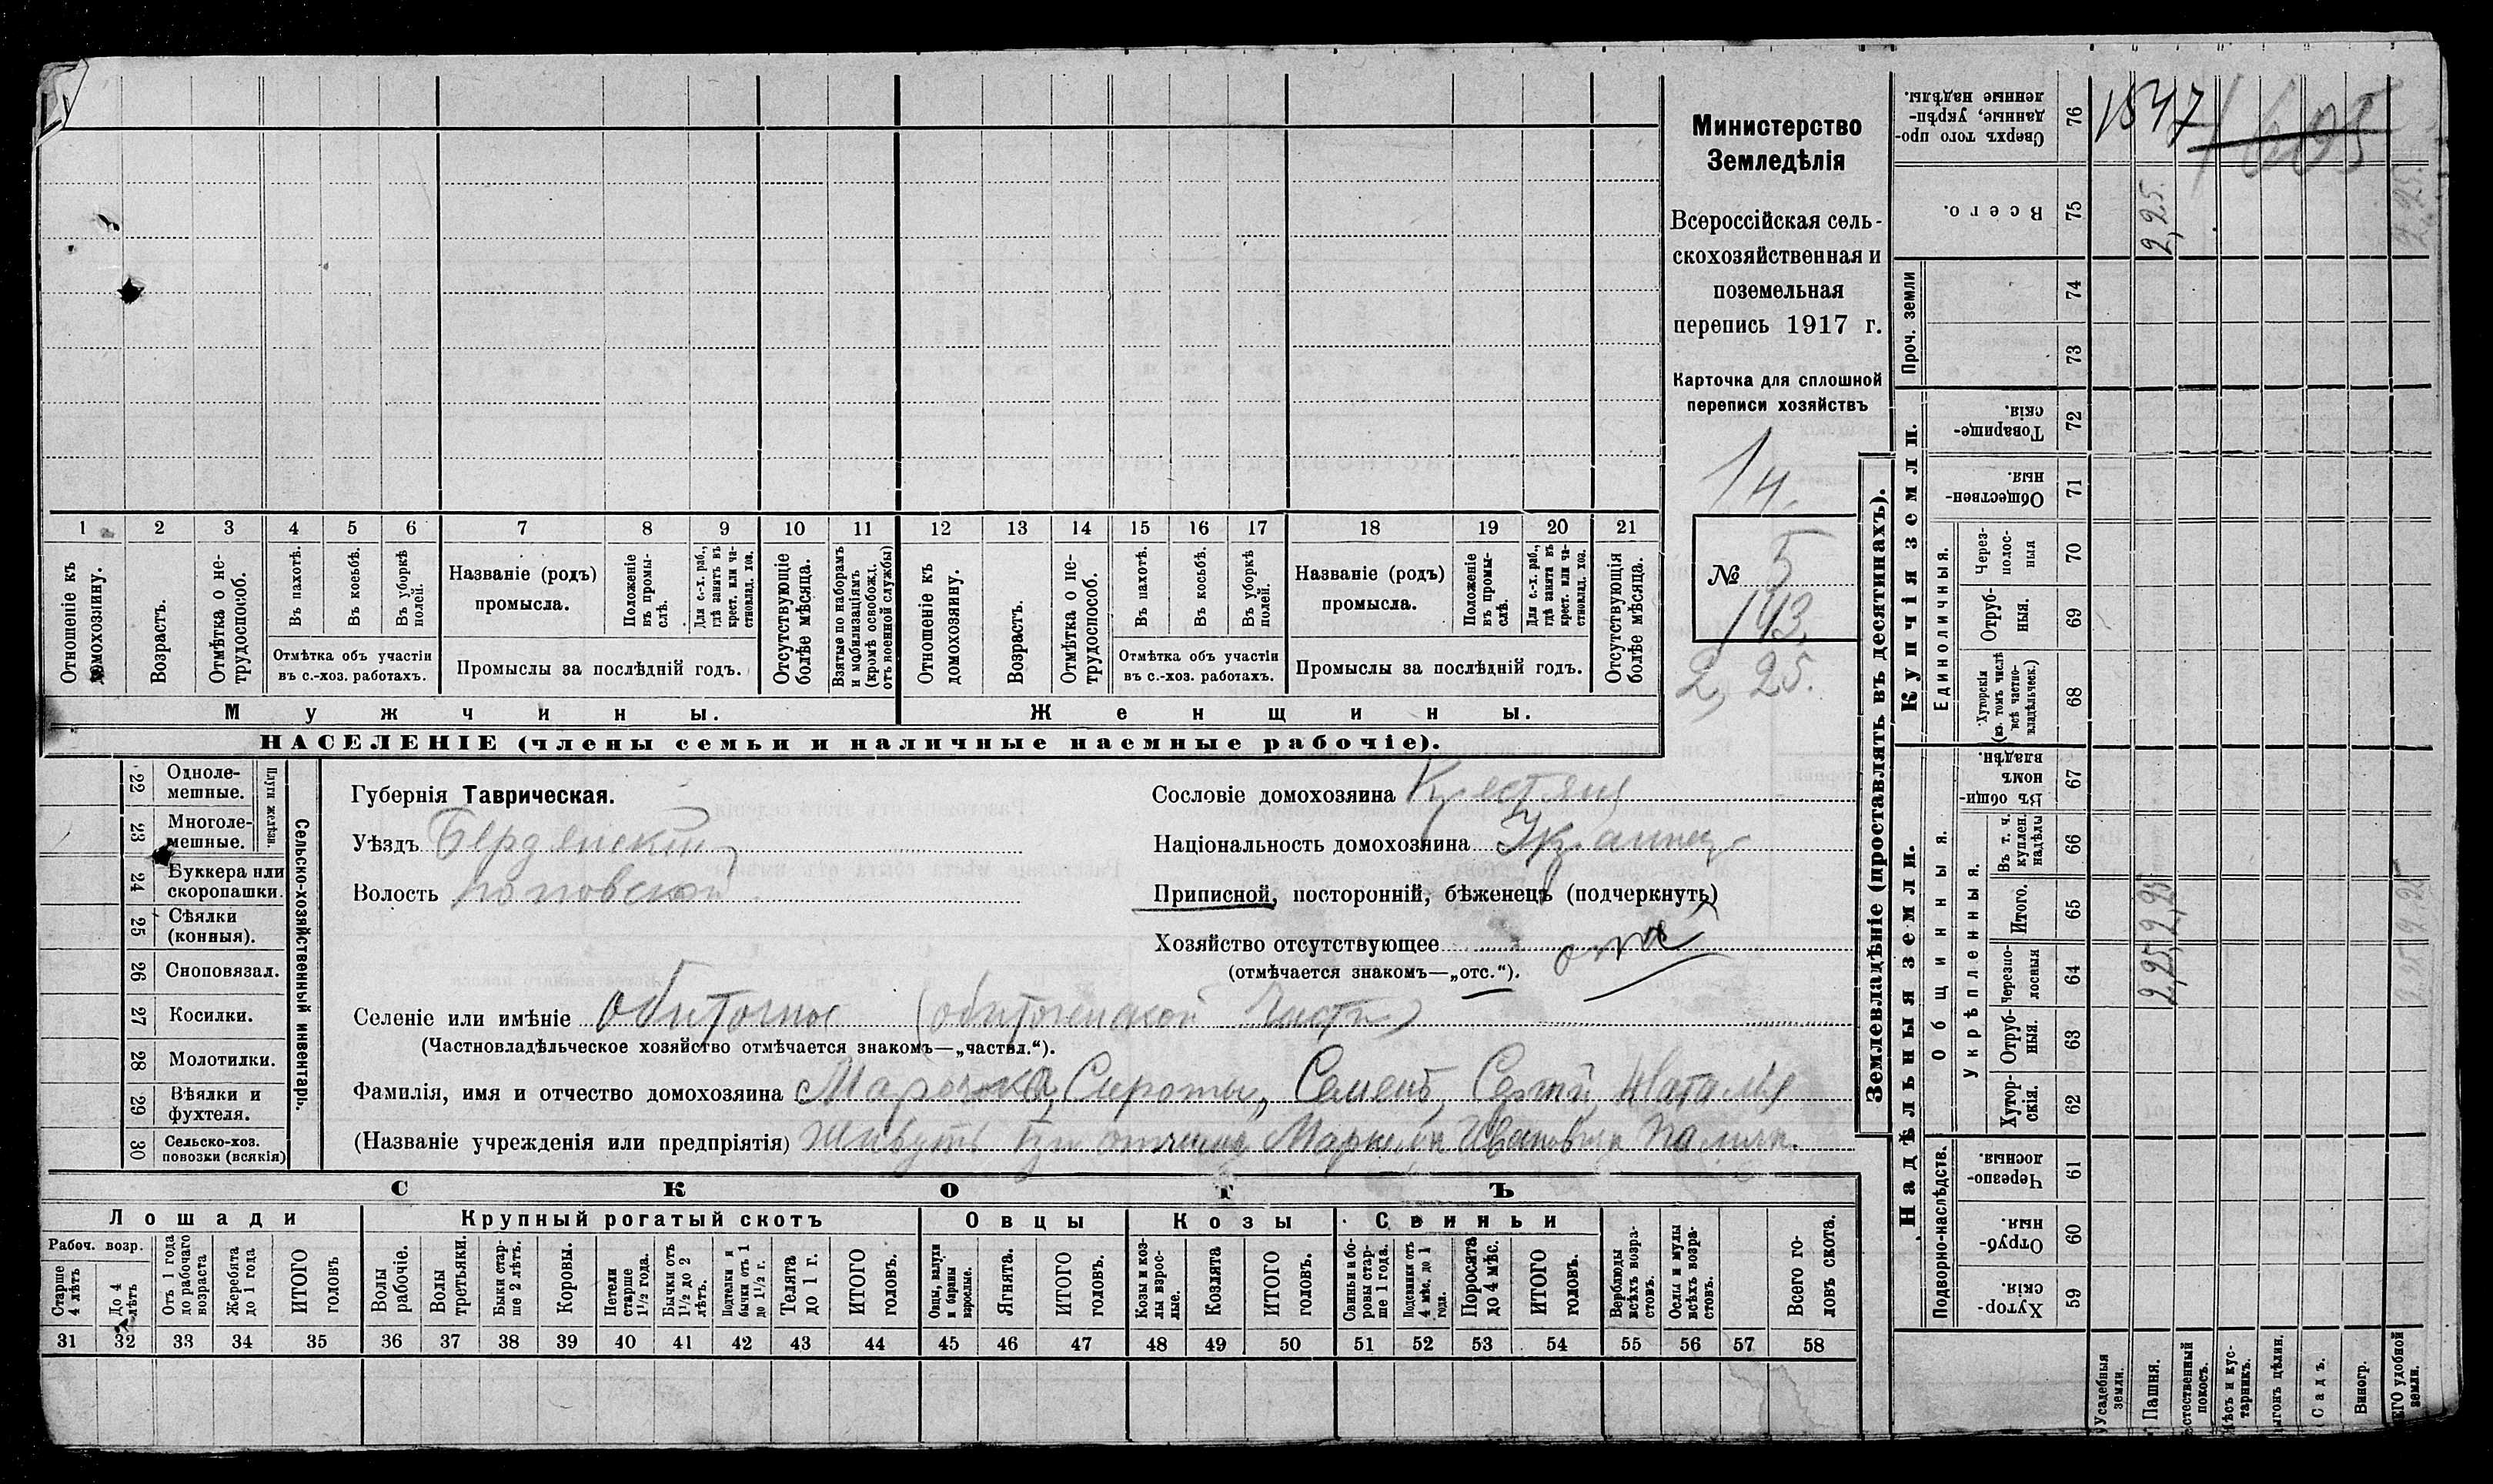 Министерство
Земледѣлія
Всероссійская сель-
скохозяйственная и
поземельная
перепись 1917 г.
Карточка для сплошной
переписи хозяйствъ
14.
№ 5
143.
2,25.
1 2 3 4 5 6 7 8 9 10 11 12 13 14 15 16 17 18 19 20 21
Отношеніе къ домохозяину.
Возрастъ.
Отмѣтка о не-трудоспособ.
Въ пахотѣ.
Въ косьбѣ.
Въ уборкѣ полей.
Отмѣтка объ участіи
въ с.-хоз. работахъ.
Названіе (родъ)
промысла.
Положеніе въ промы-слѣ.
Для с.-х. раб., гдѣ занятъ въ крест. или ча-стновлад. хоз.
Промыслы за послѣдній годъ.
Отсутствующіе болѣе мѣсяца.
Взятые по наборамъ и мобилизаціямъ (кромѣ освобожд. отъ военной службы)
Отношеніе къ домохозяину.
Возрастъ.
Отмѣтка о не-трудоспособ.
Въ пахотѣ.
Въ косьбѣ.
Въ уборкѣ полей.
Отмѣтка объ участіи
въ с.-хоз. работахъ.
Названіе (родъ)
промысла.
Положеніе въ промы-слѣ.
Для с.-х. раб., гдѣ занята въ крест. или ча-стновлад. хоз.
Промыслы за послѣдній годъ.
Отсутствующія болѣе мѣсяца.
Мужчины.
Женщины.
НАСЕЛЕНІЕ (члены семьи и наличные наемные рабочіе).
22 Одноле-мешные.
23 Многоле-мешные.
Плуги желѣзн.
24 Буккера или скоропашки.
25 Сѣялки (конныя).
26 Сноповязал.
27 Косилки.
28 Молотилки.
29 Вѣялки и фухтеля.
30 Сельско-хоз. повозки (всякія)
Сельско-хозяйственный инвентарь.
Губернія Таврическая.
Уѣздъ Бердянскій
Волость Поповской
Сословіе домохозяина Крестьян
Національность домохозяина Украинец
Приписной, посторонній, бѣженецъ (подчеркнуть)
Хозяйство отсутствующее отс
(отмѣчается знакомъ—„отс.“).
Селеніе или имѣніе Обиточное (обиточенской части)
(Частновладѣльческое хозяйство отмѣчается знакомъ—„частвл.“).
Фамилія, имя и отчество домохозяина Сироты, Семенъ, Наталія
(Названіе учрежденія или предпріятія) Живутъ отчима Ивановича
СКОТЪ
Лошади
Крупный рогатый скотъ
Овцы
Козы
Свиньи
Рабоч. возр.
Старше 4 лѣтъ
До 4 лѣтъ
Отъ 1 года до рабочаго возраста
Жеребята до 1 года
ИТОГО головъ
Волы рабочіе.
Волы третьяки.
Быки стар-ше 2 лѣтъ.
Коровы.
Нетели старше 1½ года.
Бычки отъ 1½ до 2 лѣтъ.
Подтелки и бычки отъ 1 до 1½ г.
Телята до 1 г.
ИТОГО головъ.
Овцы, валухи и бараны взрослые.
Ягнята.
ИТОГО головъ.
Козы и коз-лы взрос-лые.
Козлята
ИТОГО головъ.
Свиньи и бо-ровы стар-ше 1 года.
Подсвинки отъ 4 мѣс. до 1 года.
Поросята до 4 мѣс.
ИТОГО головъ.
Верблюды всѣхъ возра-стовъ.
Ослы и мулы всѣхъ возра-стовъ.
Всего го-ловъ скота.
31 32 33 34 35 36 37 38 39 40 41 42 43 44 45 46 47 48 49 50 51 52 53 54 55 56 57 58
Землевладѣніе (проставлять въ десятинахъ).
Надѣльныя земли.
Купчія земли.
Проч. земли
Подворно-наслѣдств.
Общинныя.
Укрѣпленныя.
Единоличныя.
Сверхъ того про-данные, укрѣп-ленные надѣлы. 76
1847
1605
Всего. 75 2,25. 2,25.
74
73
Товарище-скія. 72
Обществен-ныя. 71
Через-полос-ныя 70
Отруб-ныя. 69
Хуторскія (въ томъ числѣ всѣ частно-владѣльческ.) 68
Въ общи-номъ владѣн. 67
Въ т. ч. куплен. надѣлы 66
Итого. 65 2,25 2,25
Черезпо-лосныя 64 2,25 2,25
Отруб-ныя. 63
Хутор-скія. 62
Черезпо-лосныя. 61
Отруб-ныя. 60
Хутор-скія. 59
Усадебныя земли.
Пашня.
стественный покосъ.
ѣсъ и кус-тарникъ.
ыгонъ цѣлин.
Садъ.
Виногр.
ЕГО удобной земли.